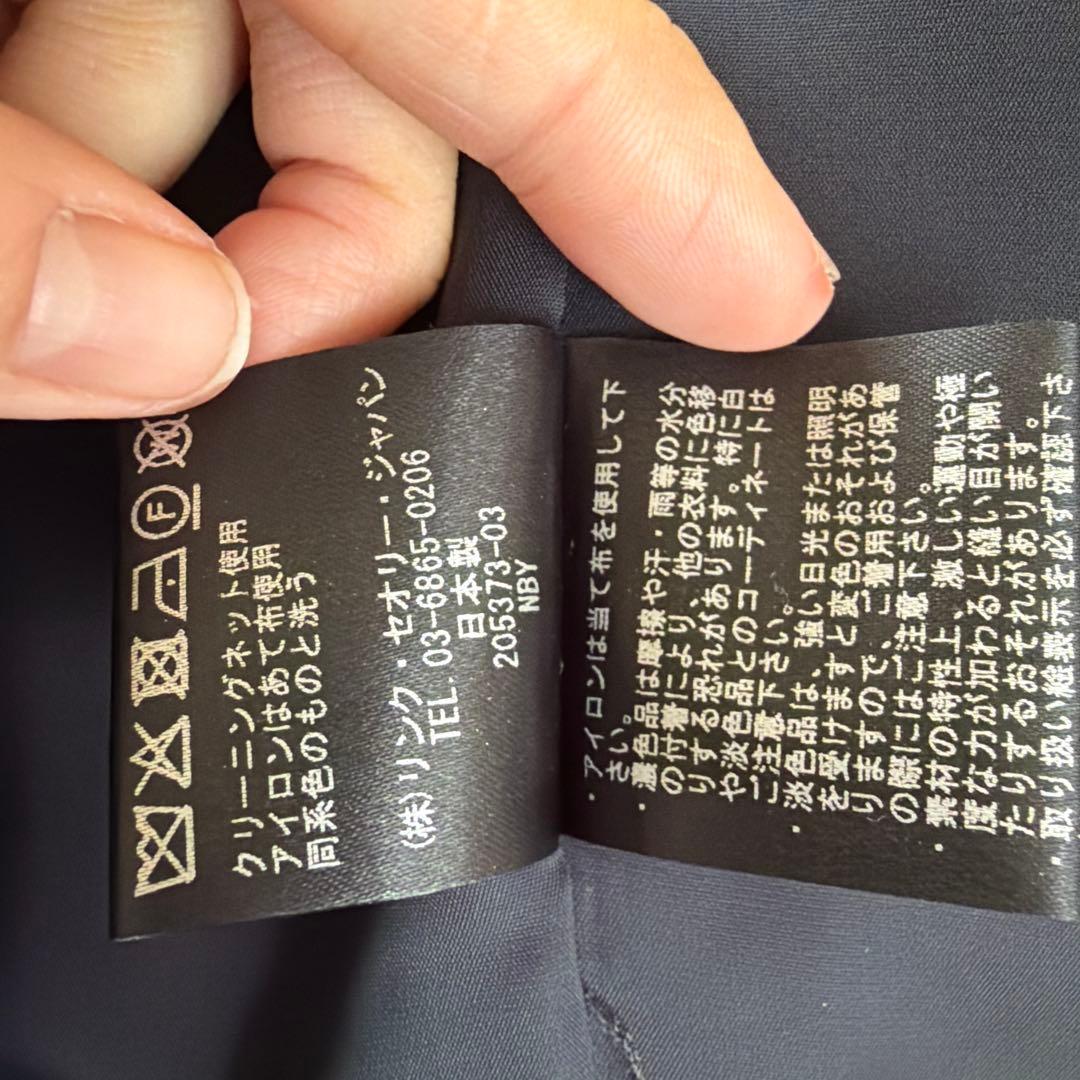 F
クリーニングネット使用
アイロンはあて布使用
同系色のものと洗う
(株)リンク・セオリー・ジャパン
TEL.03-6865-0206
日本製
205373-03
NBY
・アイロンは当て布を使用して下
さい。
・濃色品は摩擦や汗・雨等の水分
の付着により、他の衣料に色移
りする恐れがあります。特に白
や淡色品とのコーディネートは
ご注意下さい。
・淡色品は、強い日光または照明
を受けますと変色のおそれがあ
りますので、ご着用および保管
の際にはご注意下さい。
・素材の特性上、激しい運動や極
度な力が加わると縫い目が開い
たりするおそれがあります。
・取り扱い絵表示を必ず確認下さ